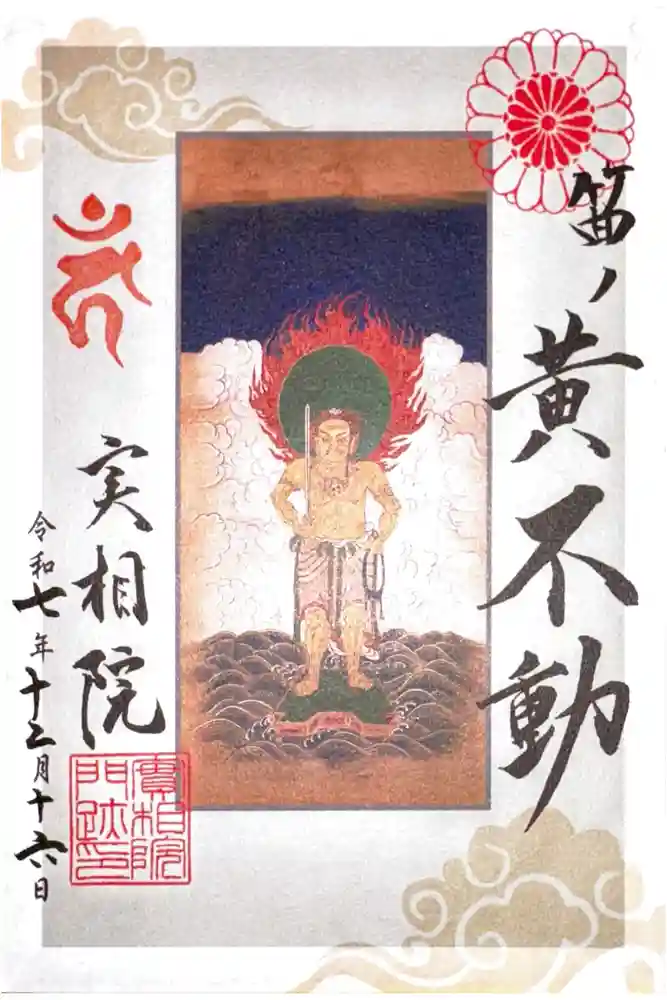 笛ノ黄不動
実相院
令和七年十二月十六日
實相院
門跡印